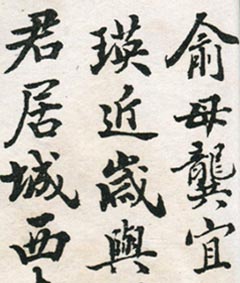 俞母龔宜
瑛近歲與
君居城西